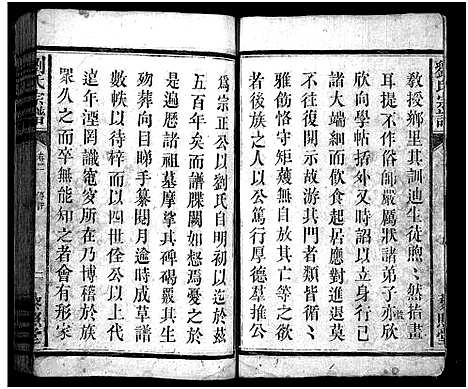 敎授鄕里其訓迪生徒煦煦然指畫
耳提不作俗師嚴厲狀諸弟子亦欣
欣向學帖括外又時詔以立身行己
諸大端雖飮食起居應對進退莫
不往復開示故游其門者類多
雍雍恪守矩蒦無敢佻其亡等之歛
者後族人之以公篤行厚德羣推公
爲宗正公以劉氏自明初以迄於茲
五百年矣而譜牒闕如慼爲憂之於
是遍歷諸祖墓摩挲其碑碣覈其生
歿葬向目睇手纂閱月逾時成草譜
數帙以待梓而以四世佺公以上代
遠年湮罔識窀穸所在乃博稽於族
眾久之而卒無能知之者會有形家
劉氏宗譜
卷二